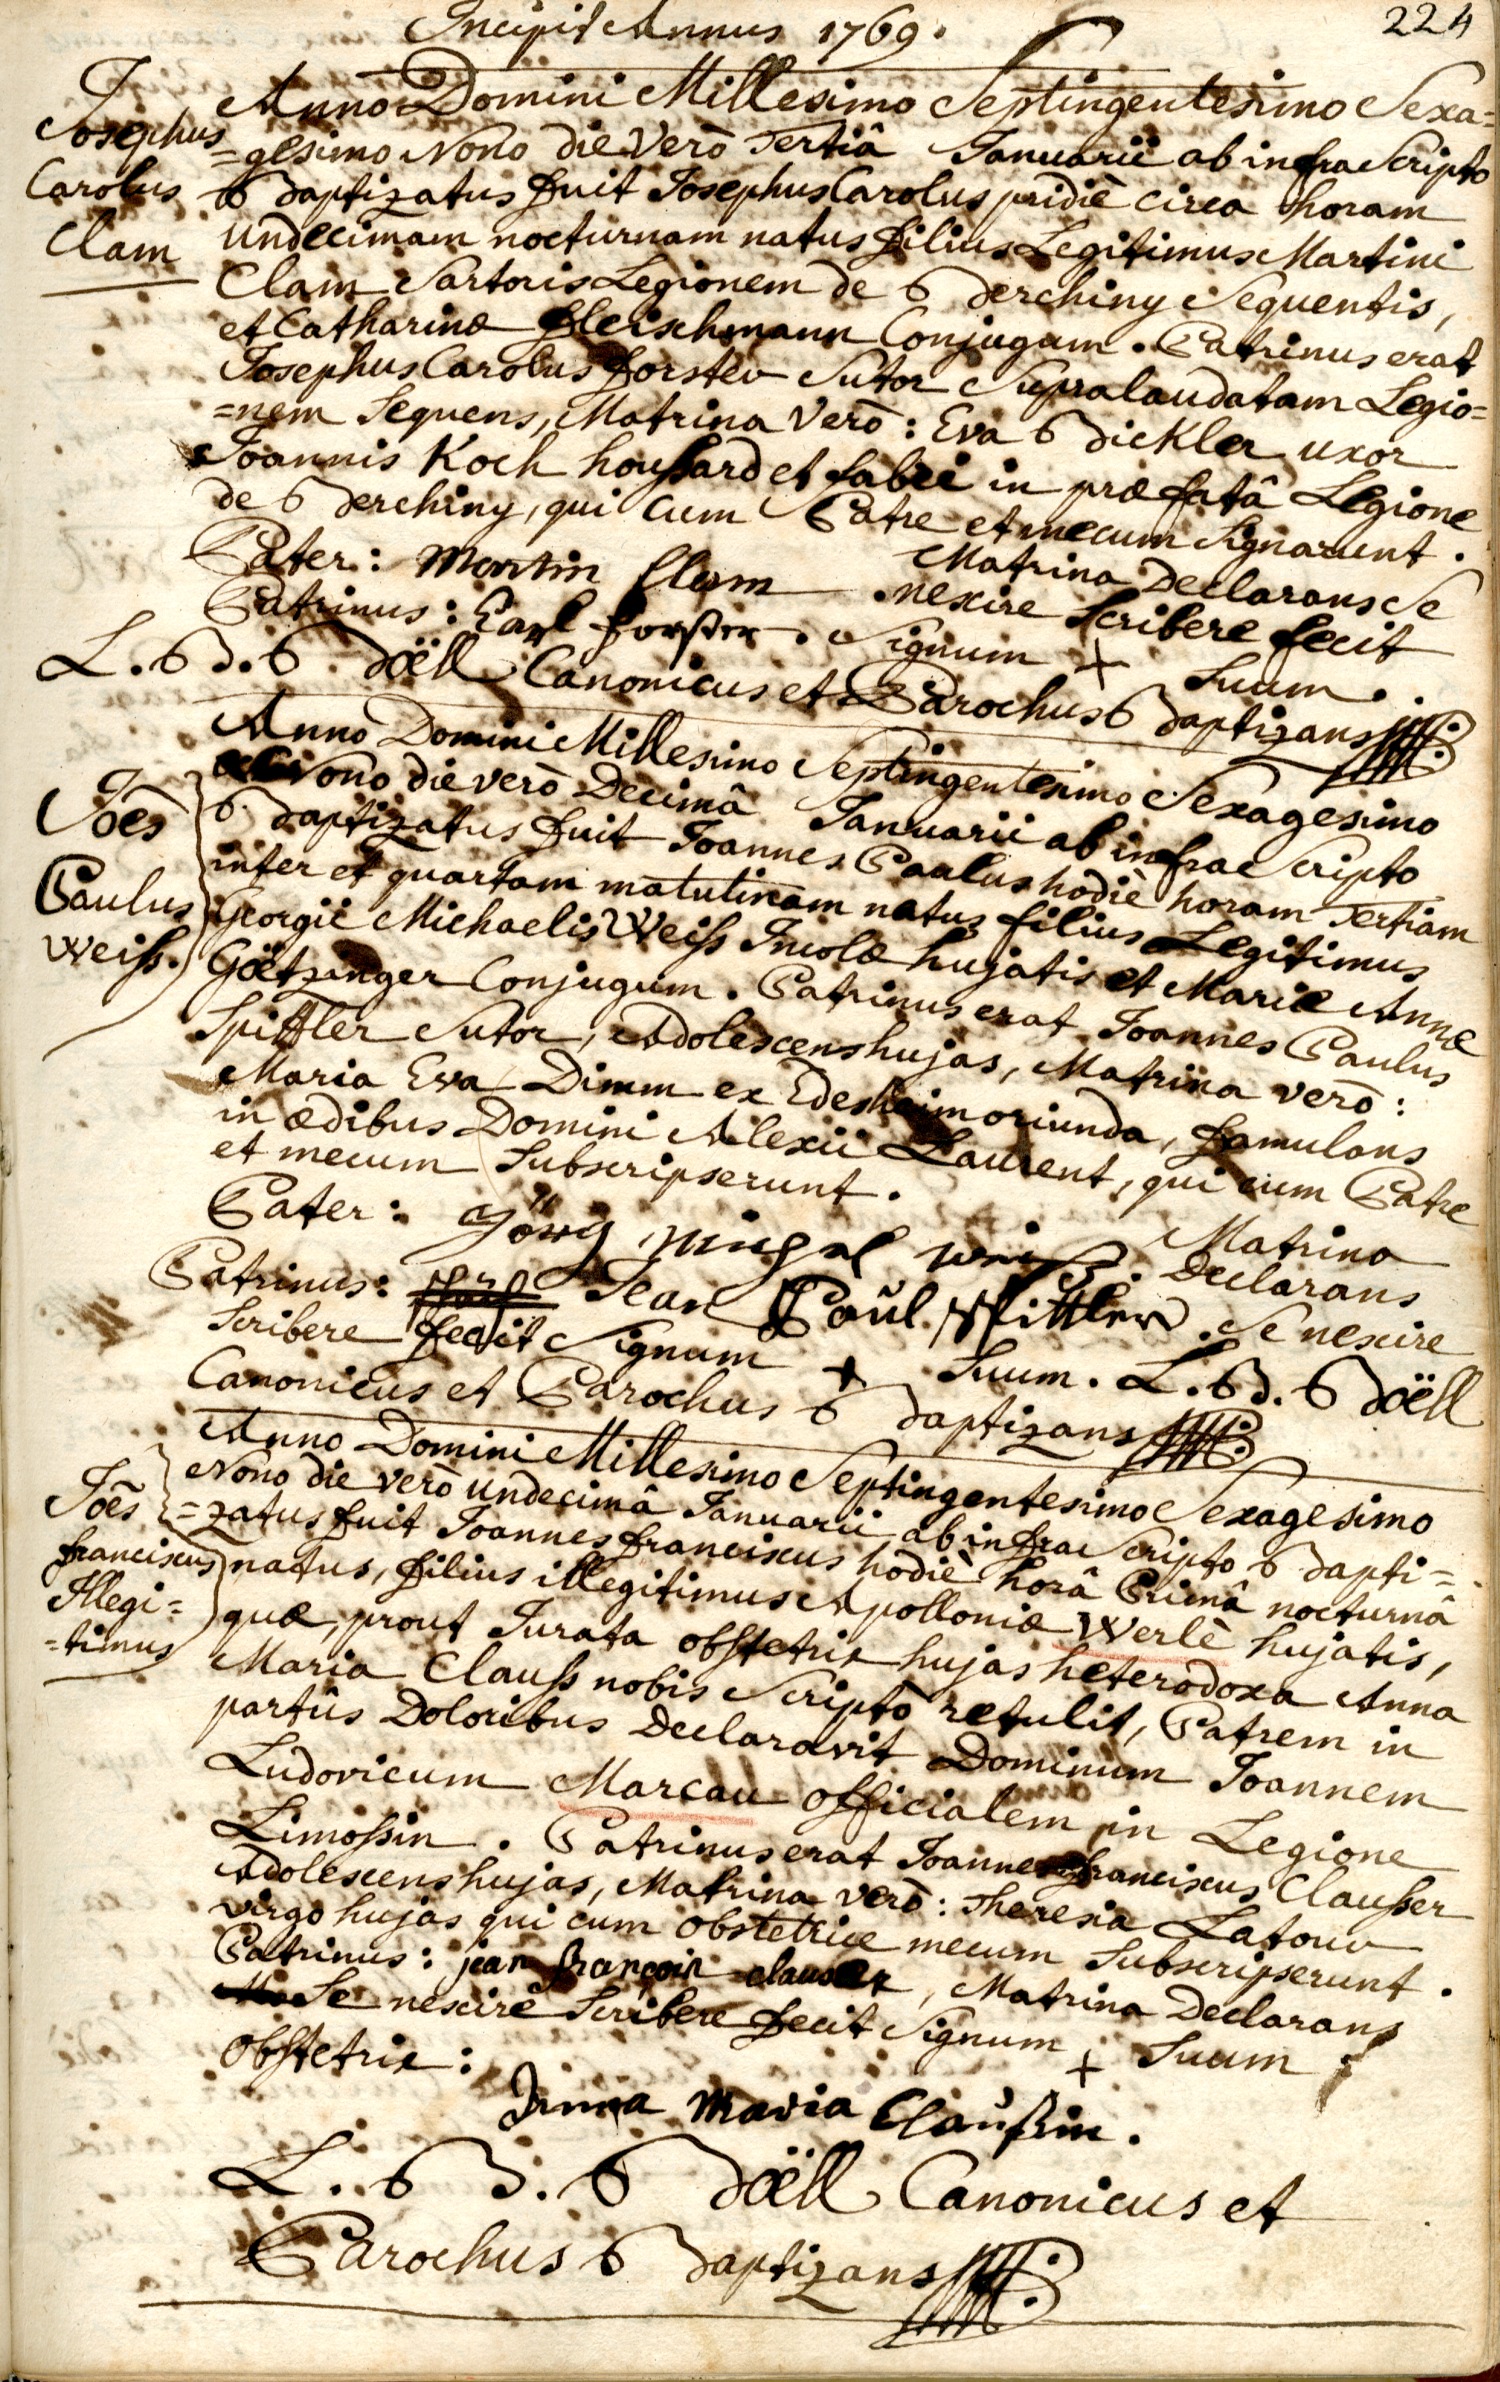 Incipit Annus 1769.
224
Josephus
Carolus
Clam
Anno Domini Millesimo Septingentesimo Sexa=
=gesimo Nono die Verò Tertiâ Januarii ab infra Scripto
Baptizatus fuit Josephus Carolus pridiè circa horam
undecimam nocturnam natus filius Legitimus Martini
Clam Sartoris Legionem de Berchiny Sequentis,
et Catharinæ fleischmann Conjugum. Patrinus erat
Josephus Carolus forster Sutor Supralaudatam Legio=
=nem Sequens, Matrina Verò: Eva Bickler uxor
Joannis Koch houssard et fabri in præfatâ Legione
de Berchiny, qui cum Patre et mecum Signarunt.
Pater: Martin Clam
Matrina Declarans Se
Patrinus: Carl forster. nescire Scribere fecit
Signum + Suum.
L. B. Böëll Canonicus et Parochus Baptizans
Joēs
Paulus
Weiss.
Anno Domini Millesimo Septingentesimo Sexagesimo
Nono die verò Decimâ Januarii ab infra Scripto
Baptizatus fuit Joannes Paulus hodiè horam Tertiam
inter et quartam matutinam natus filius Legitimus
Georgii Michaelis Weiss Incolæ hujatis et Mariæ Annæ
Göetzinger Conjugum. Patrinus erat Joannes Paulus
Spittler Sutor, Adolescens hujas, Matrina verò:
Maria Eva Dimm ex Edesheim oriunda, famulans
in ædibus Domini Alexii Laurent, qui cum Patre
et mecum Subscripserunt.
Pater: Görg Michael Weiss.
Matrina
Declarans
Patrinus: Jean Paul Spittler. Se nescire
Scribere fecit Signum + Suum. L. B. Böëll
Canonicus et Parochus Baptizans
Joēs
franciscus
Illegi=
=timus
Anno Domini Millesimo Septingentesimo Sexagesimo
Nono die verò undecimâ Januarii ab infra Scripto Bapti=
=zatus fuit Joannes franciscus hodiè horâ Primâ nocturnâ
natus, filius illegitimus Apolloniæ Werlè hujatis,
quæ, prout Jurata obstetrix hujas heterodoxa Anna
Maria Clauss nobis Scriptò retulit, Patrem in
partûs Doloribus Declaravit Dominum Joannem
Ludovicum Marcau officialem in Legione
Limossin. Patrinus erat Joannes franciscus Clausser
Adolescens hujas, Matrina Verò: Theresia Latour
virgo hujas qui cum obstetrice mecum Subscripserunt.
Patrinus: jean françois clauser, Matrina Declarans
Se nescire Scribere fecit Signum + Suum.
obstetrix:
Anna Maria Claußin.
L. B. Böëll Canonicus et
Parochus Baptizans